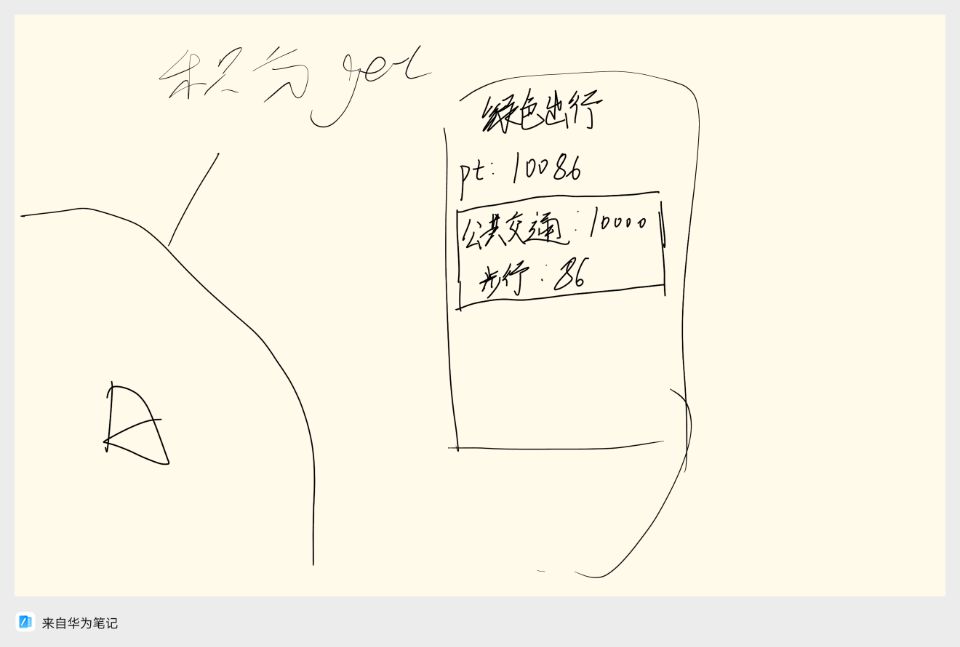 积分get
绿色出行
pt: 10086
公共交通: 10000
步行: 86
A
来自华为笔记